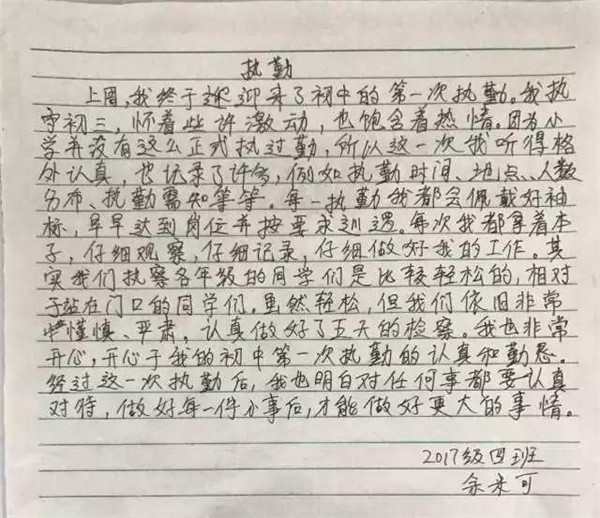 执勤
上周,我终于迎迎来了初中的第一次执勤。我执
守初三,怀着些许激动,也饱含着热情。因为小
学并没有这么正式执过勤,所以这一次我听得格
外认真,也记录了许多,例如执勤时间、地点、人数
分布、执勤需知等等。每一执勤我都会佩戴好袖
标,早早达到岗位并按要求训。每次我都拿着本
子,仔细观察,仔细记录,仔细做好我的工作。其
实我们执察各年级的同学们是比较轻松的,相对
于站在门口的同学们。虽然轻松,但我们依旧非常
谨慎、严肃,认真做好了五天的检察。我也非常
开心,开心于我的初中第一次执勤的认真和勤恳。
经过这一次执勤后,我也明白对任何事都要认真
对待,做好每一件小事后,才能做好更大的事情。
2017级四班
余 可